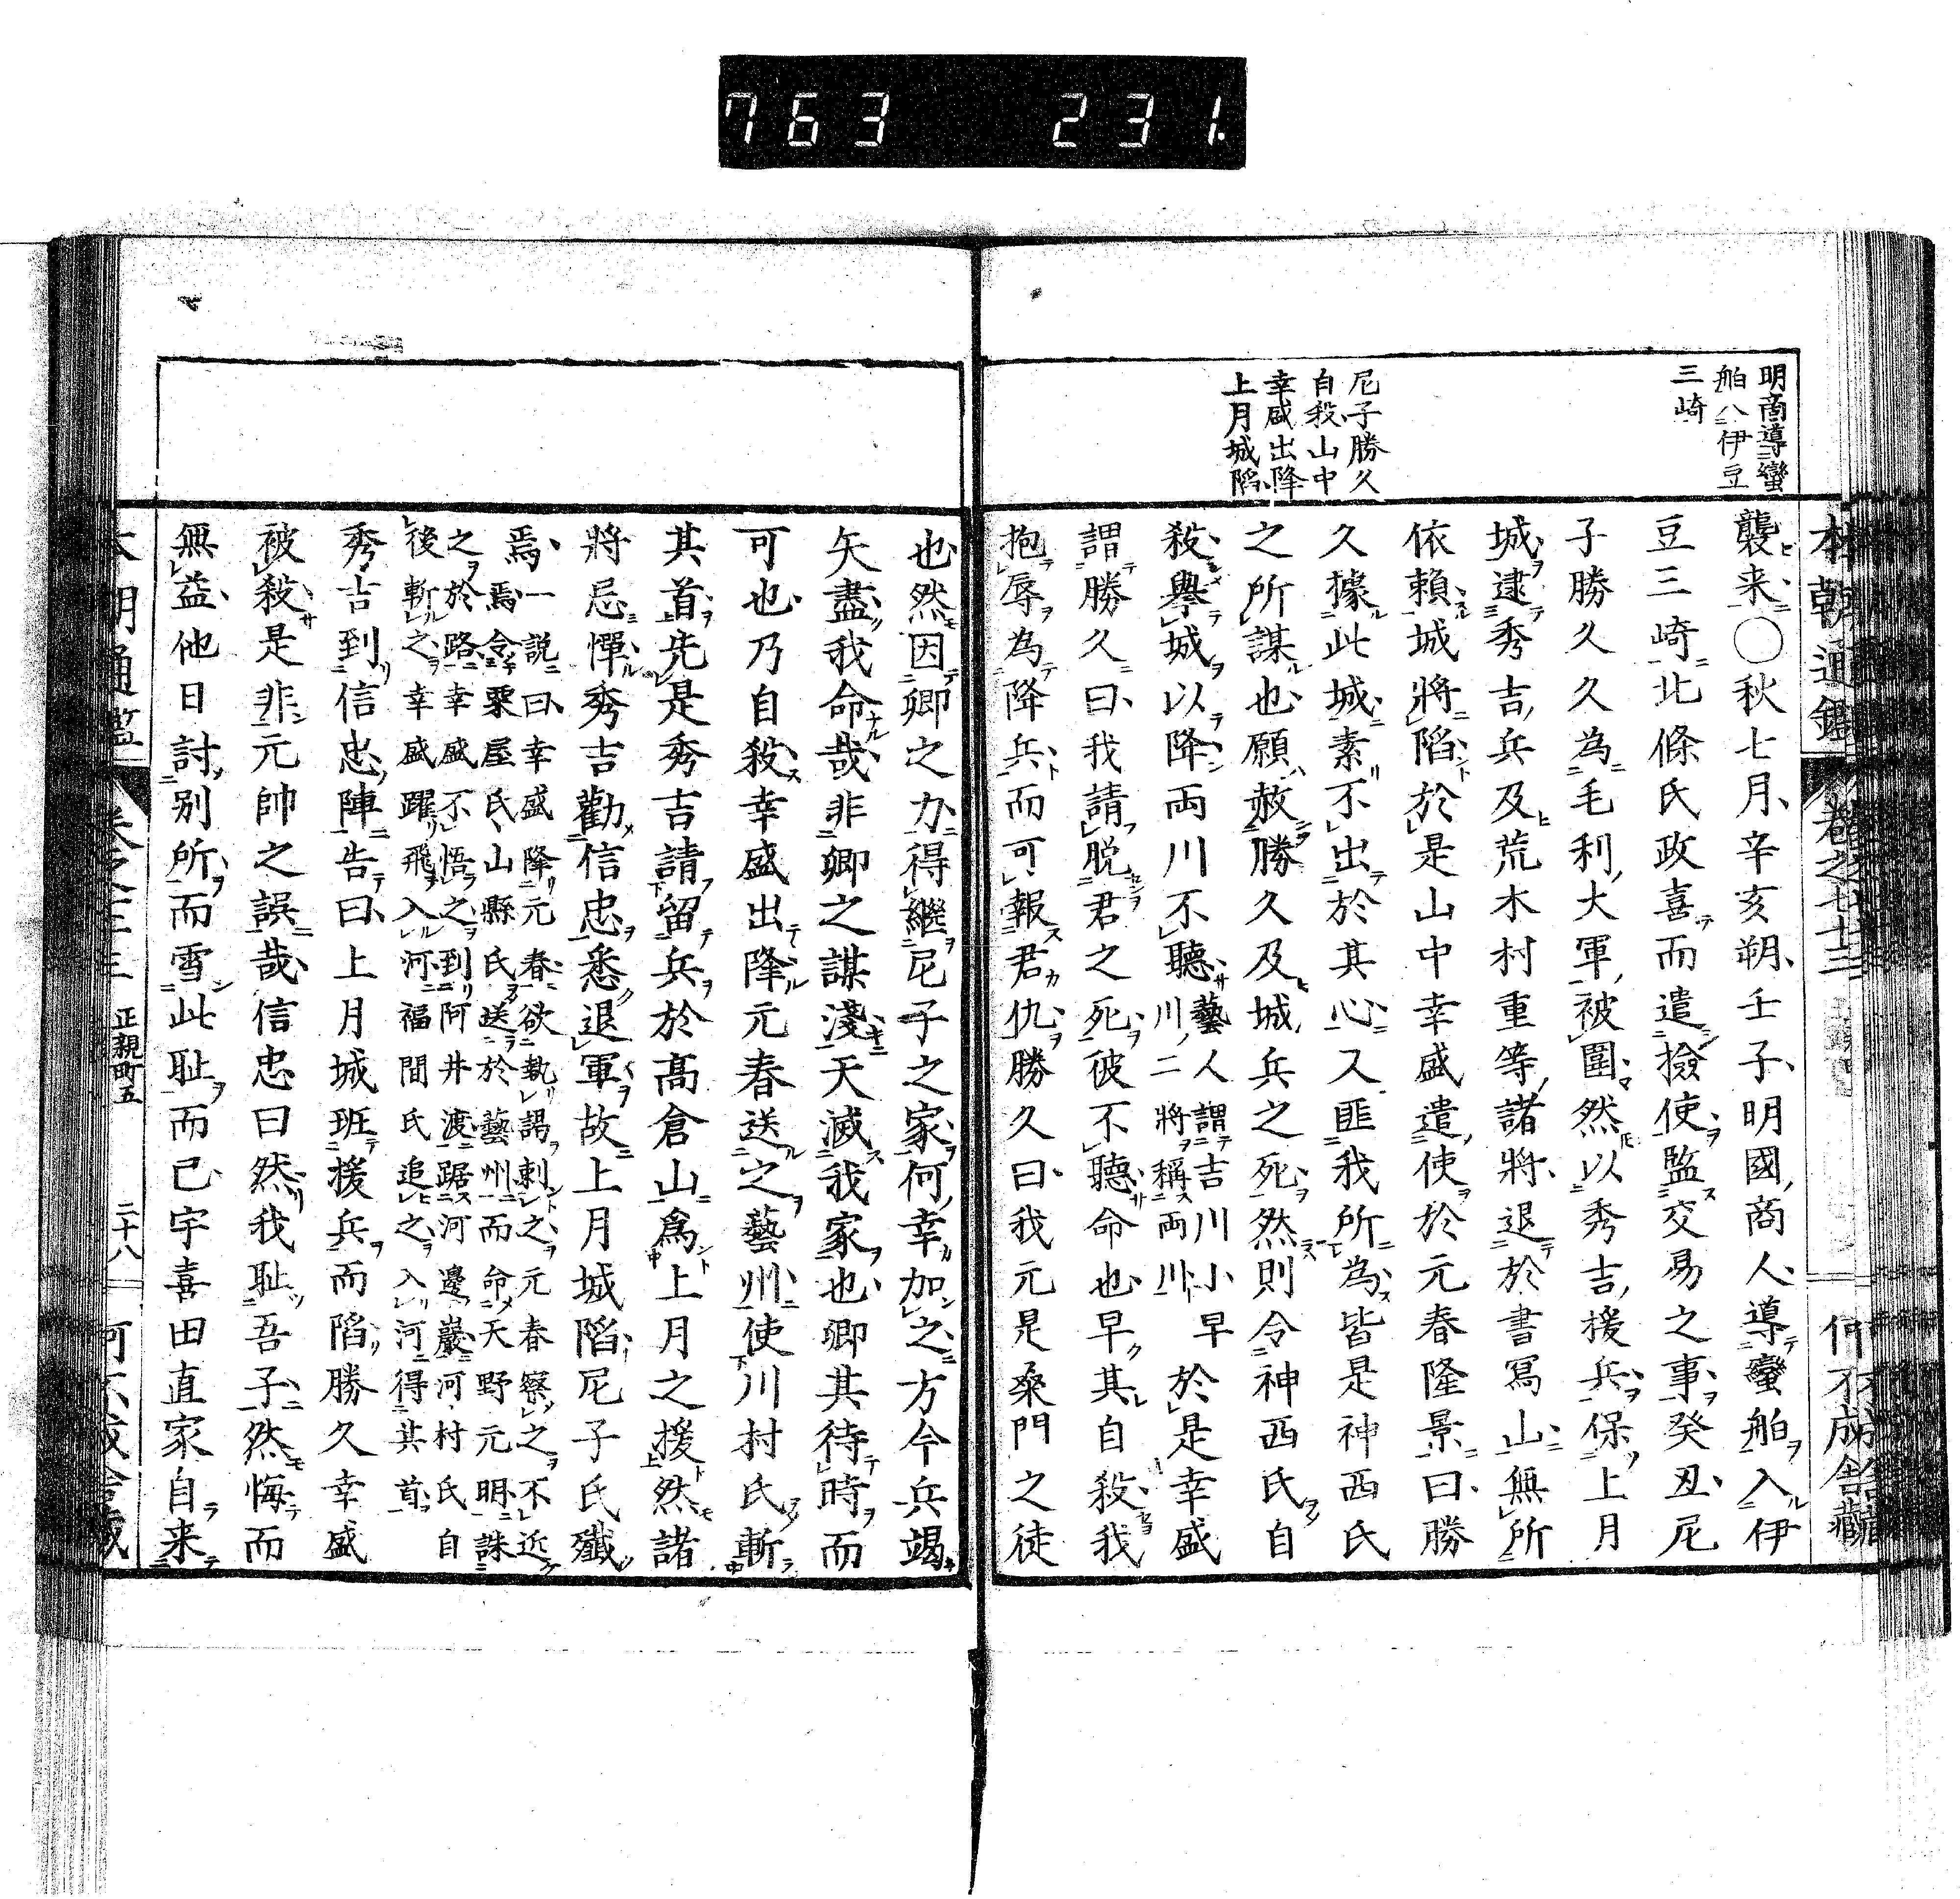 763 231.
本朝通鑑 卷之七十三 何不成舎蔵
明商導蠻
舶入伊豆
三崎
尼子勝久
自殺山中
幸盛出降
上月城陷
襲来〇秋七月辛亥朔壬子明國商人導蠻舶入伊
豆三崎北條氏政喜而遣撿使監交易之事癸丑尼
子勝久久為毛利大軍被圍然以秀吉援兵保上月
城逮秀吉兵及荒木村重等諸將退於書冩山無所
依頼城將陷於是山中幸盛遣使於元春隆景曰勝
久據此城素不出於其心又匪我所為皆是神西氏
之所謀也願赦勝久及城兵之死然則令神西氏自
殺擧城以降両川不聽藝人謂吉川小早川二將稱両川於是幸盛
謂勝久曰我請脱君之死彼不聽命也早其自殺我
抱辱為降兵而可報君仇勝久曰我元是桑門之徒
也然因卿之力得繼尼子之家何幸加之方今兵竭
矢盡我命哉非卿之謀淺天滅我家也卿其待時而
可也乃自殺幸盛出降元春送之藝州使川村氏斬
其首先是秀吉請留兵於高倉山爲上月之援然諸
將忌憚秀吉勸信忠悉退軍故上月城陷尼子氏殲
焉一説曰幸盛降元春欲執謁刺之元春察之不近
焉令粟屋氏山縣氏送於藝州而命天野元明誅
之於路幸盛不悟之到阿井渡踞河邊巖河村氏自
後斬之幸盛躍飛入河福間氏追之入河得其首
秀吉到信忠陣告曰上月城班援兵而陷勝久幸盛
被殺是非元帥之誤哉信忠曰然我耻吾子然悔而
無益他日討別所而雪此耻而已宇喜田直家自来
本朝通鑑 正親町五 二十八